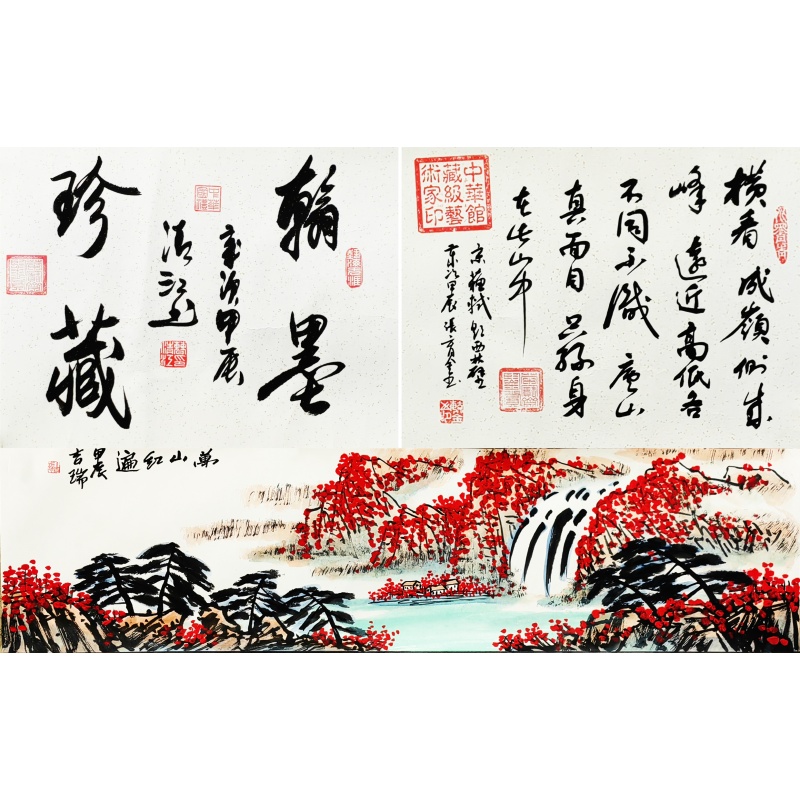 翰墨
珍藏
歲次甲辰
清江书
中華館
藏級藝
術家印
橫看成嶺側成
峰遠近高低各
不同不識廬山
真面目只緣身
在此山中
宋蘇軾題西林壁
歲次甲辰張育
萬山紅遍
甲辰
吉瑞